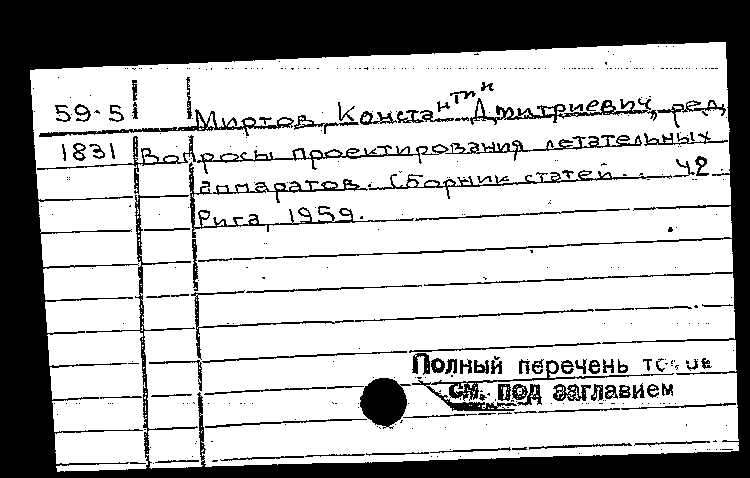 59-5 Миртов, Константин Дмитриевич, ред.
1831 Вопросы проектирования летательных
аппаратов. Сборник статей.. 42
Рига, 1959.
Полный перечень
см. под заглавием